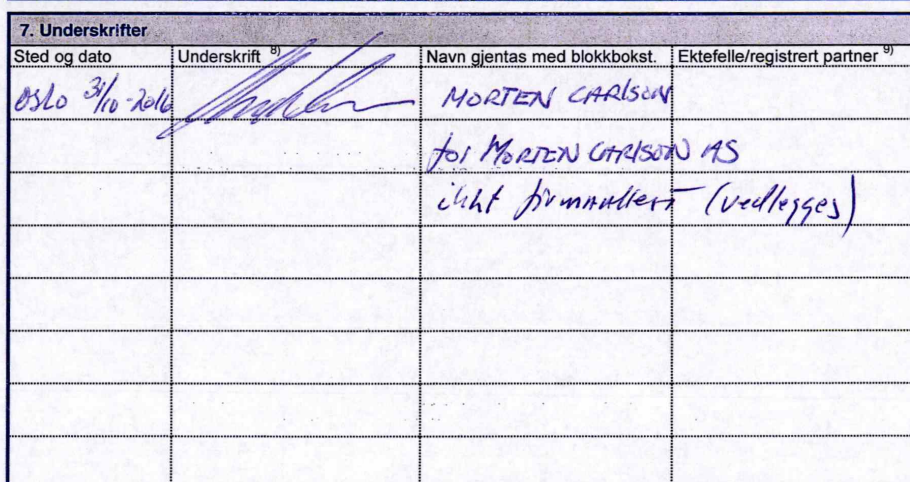 7. Underskrifter
Sted og dato Underskrift 8) Navn gjentas med blokkbokst. Ektefelle/registrert partner 9)
Oslo 31/10-2016 MORTEN CARLSON
for MORTEN CARLSON AS
ihht firmaattest (vedlegges)